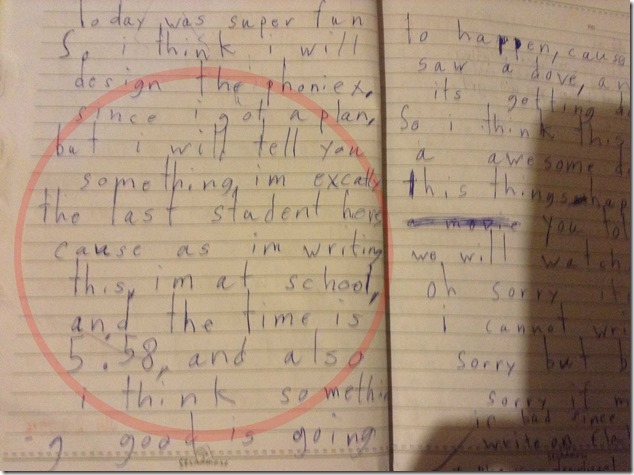 Today was super fun
So i think i will
design the phoniex,
since i got a plan,
but i will tell you
something, im excally
the last student here
cause as im writing
this, im at school,
and the time is
5.58, and also
i think somethin
g good is going
to happen, cause
saw a dove, an
its getting
So i think this
a awesome
this things hap
a movie you
we will watch
oh sorry
i cannot wri
sorry but
sorry if m
is bad since
write on